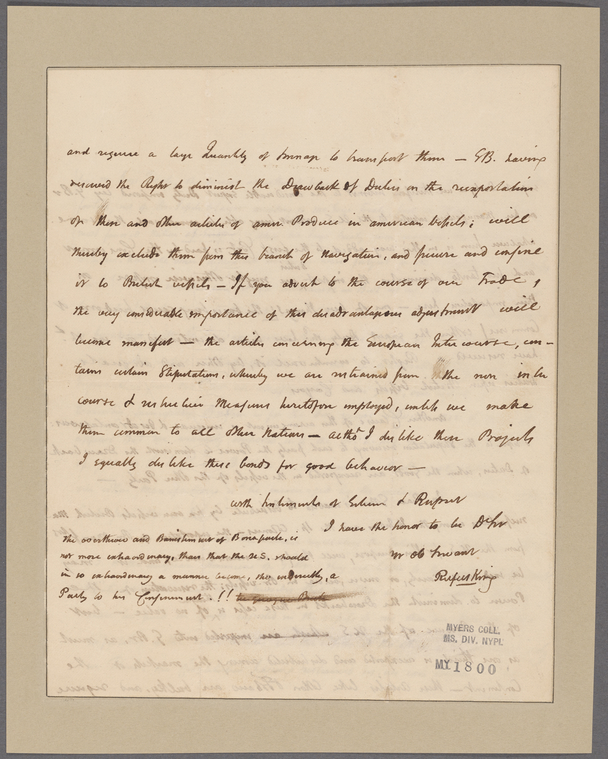 and require a large Quantity of tonnage to transport them — GB. having
reserved the Right to diminish the Drawback of Duties on the reexportation
of these and other articles of amer Produce in american vessels; will
thereby exclude them from this branch of Navigation, and secure and confine
it to British vessels — If you advert to the course of our Trade,
the very considerable importance of this disadvantageous adjustment will
become manifest — the articles concerning the European Intercourse, con-
tains certain Stipulations, whereby we are restrained from the non inter
course & restrictive Measures heretofore employed, unless we make
them common to all other Nations — altho I dislike these Projects
I equally dislike these bonds for good behavior —
with Sentiments of Esteem & Respect
I have the honor to be Dr Sir
yr ob Servant
Rufus King
the overthrow and Banishment of Bonaparte, is
not more extraordinary, than that the U.S. should
in so extraordinary a manner become, tho indirectly, a
Party to his Confinement. !!
MYERS COLL.
MS. DIV. NYPL
MY 1800